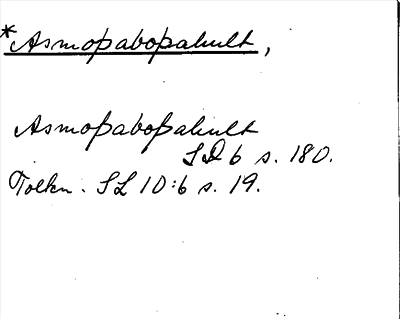 *Asmopabopahult,
Asmopabopahult
SD 6 s. 180.
Tolkn. SL 10:6 s. 19.